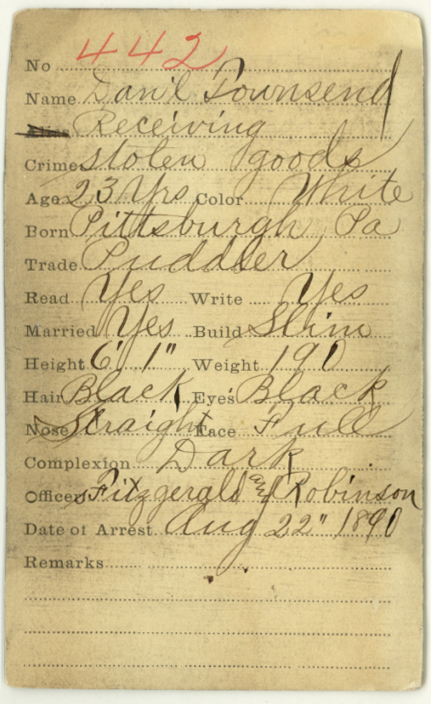 No 442
Name Dan'l Townsend
Alias Receiving
Crime stolen goods
Age 23 Yrs Color White
Born Pittsburgh, Pa
Trade Puddler
Read Yes Write Yes
Married Yes Build Slim
Height 6' 1" Weight 190
Hair Black Eyes Black
Nose Straight Face Full
Complexion Dark
Officers Fitzgerald and Robinson
Date of Arrest Aug 22" 1890
Remarks